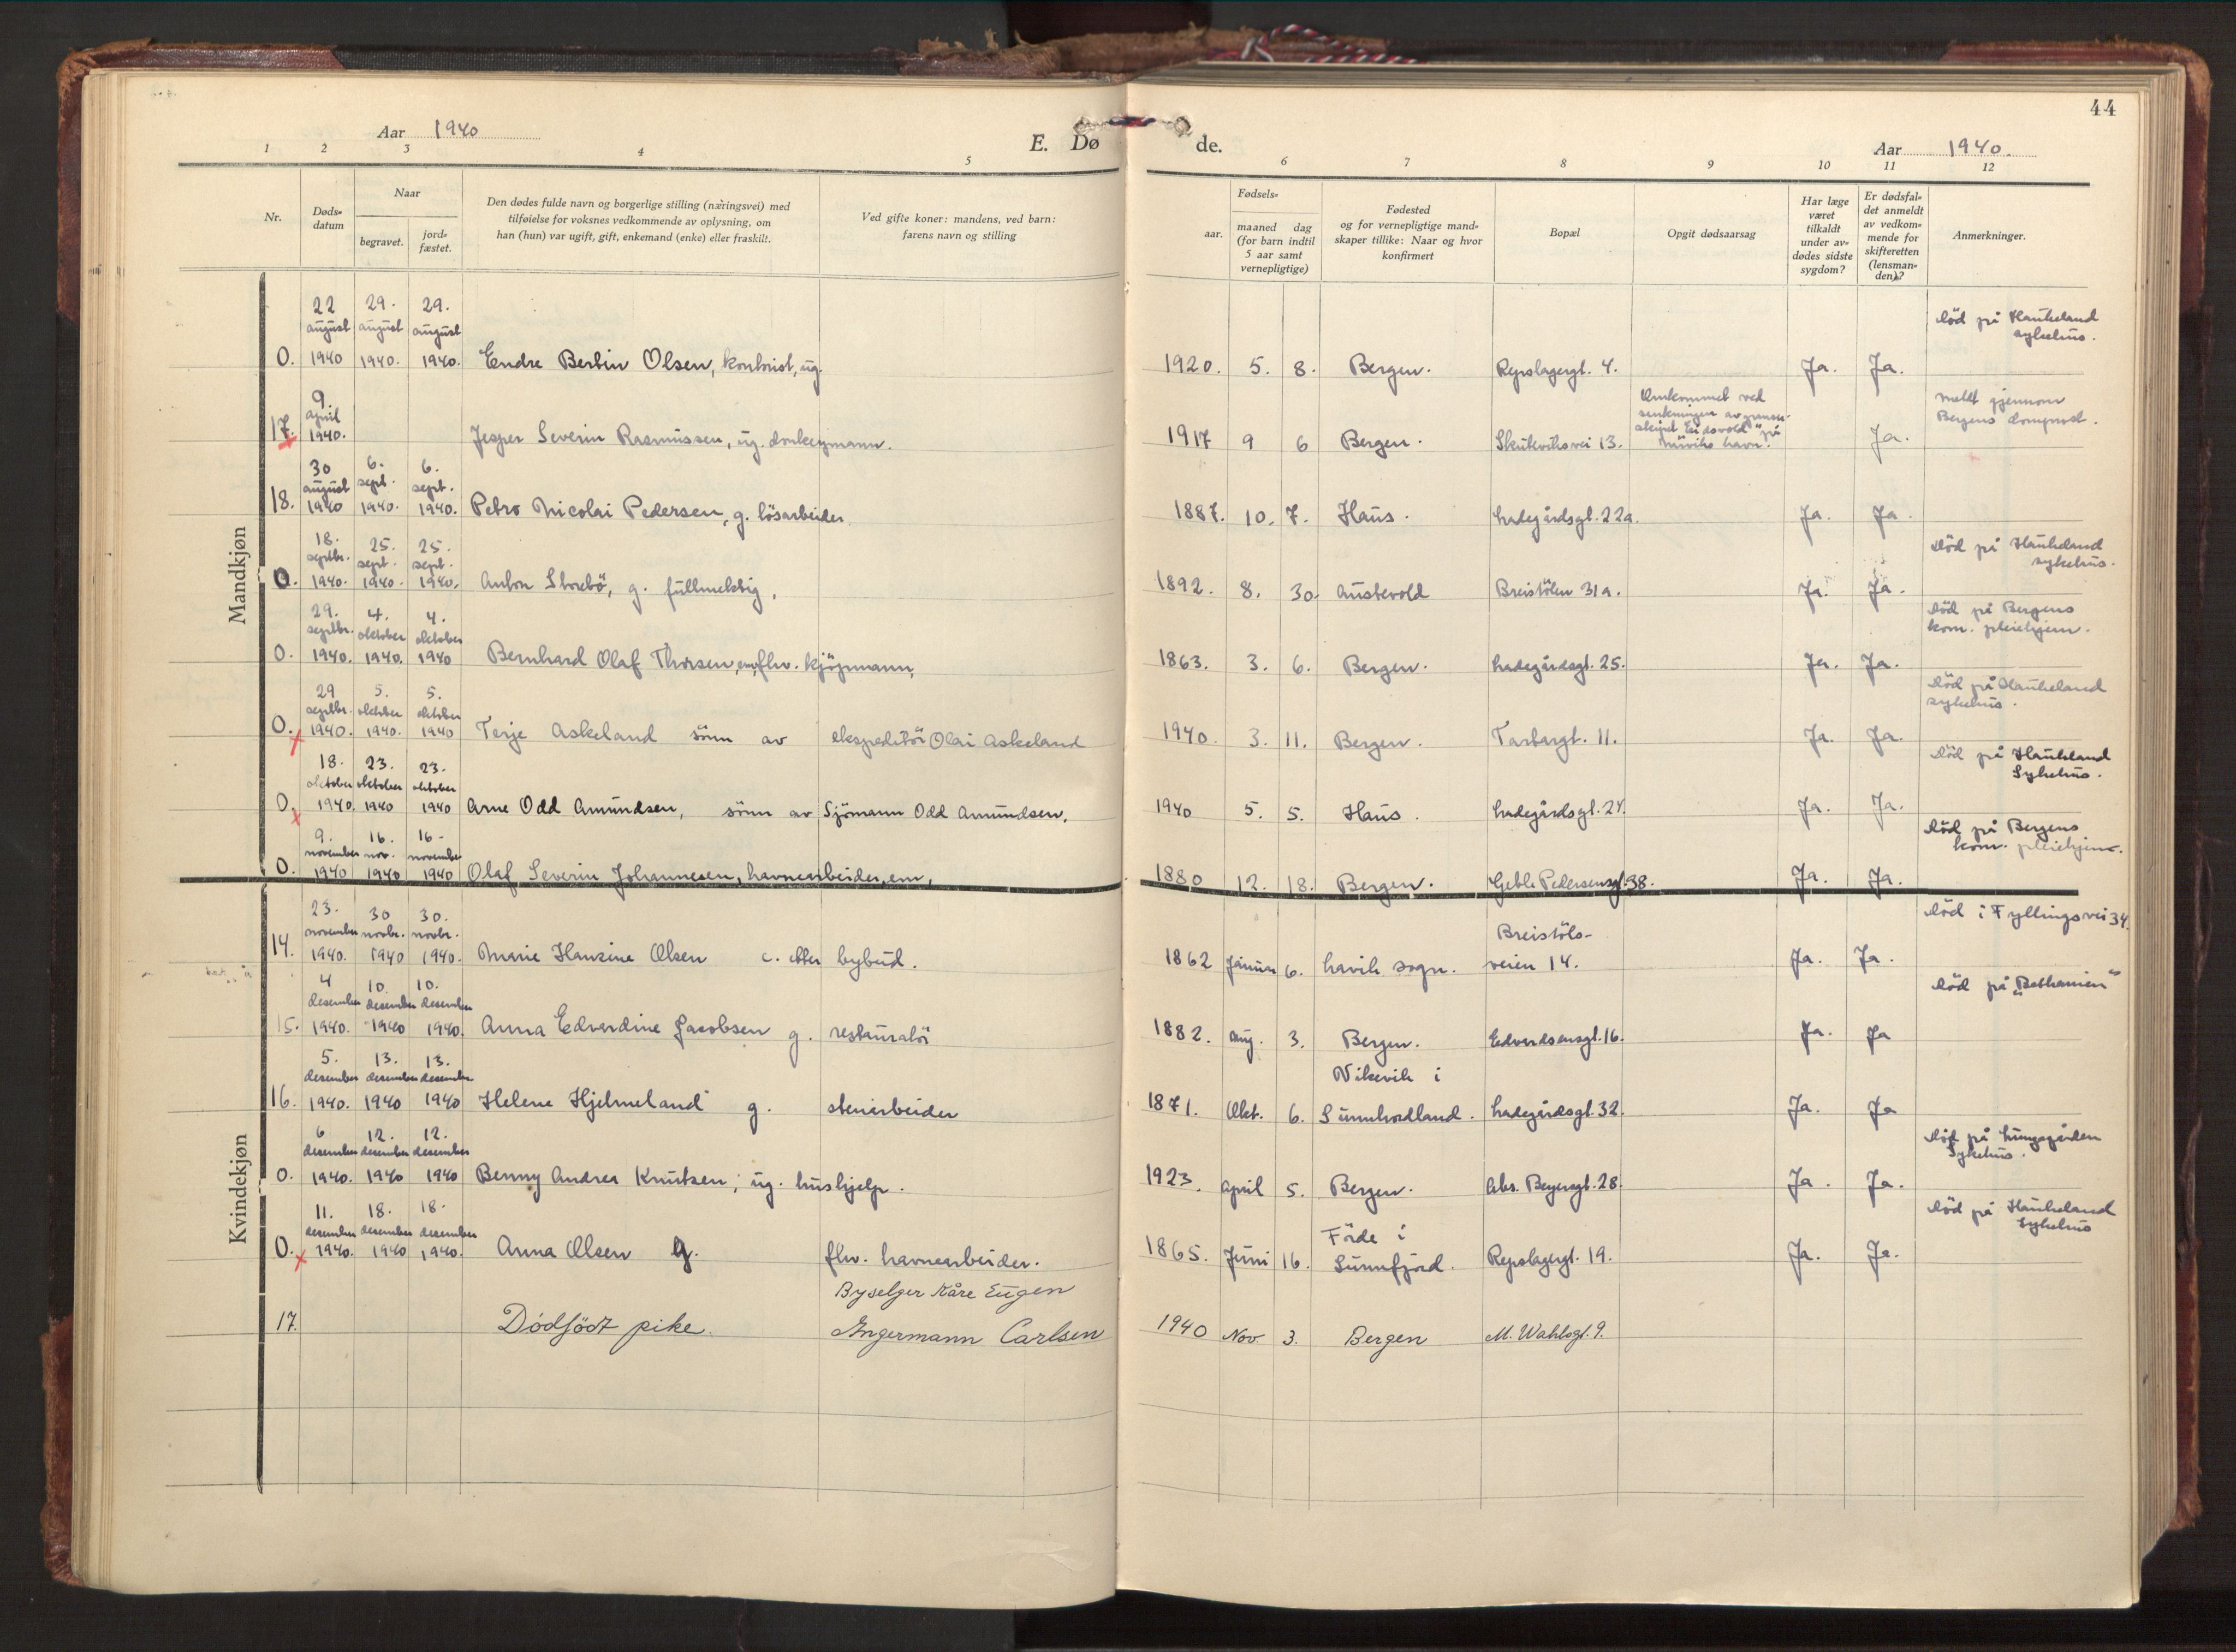 44
Aar 1940
E. Dø de.
Aar 1940.
1 2 3 4 5 6 7 8 9 10 11 12
Nr.
Døds-
datum
Naar
begravet.
jord-
fæstet.
Den dødes fulde navn og borgerlige stilling (næringsvei) med
tilføielse for voksnes vedkommende av oplysning, om
han (hun) var ugift, gift, enkemand (enke) eller fraskilt.
Ved gifte koner: mandens, ved barn:
farens navn og stilling
Fødsels-
aar.
maaned dag
(for barn indtil
5 aar samt
vernepligtige)
Fødested
og for vernepligtige mand-
skaper tillike: Naar og hvor
konfirmert
Bopæl
Opgit dødsaarsag
Har læge
været
tilkaldt
under av-
dødes sidste
sygdom?
Er dødsfal-
det anmeldt
av vedkom-
mende for
skifteretten
(lensman-
den)?
Anmerkninger.
Mandkjøn
22 29. 29.
august august august
død på Haukeland
sykehus.
0. 1940 1940. 1940. Endre Bertin Olsen, kontorist, ug. 1920. 5. 8. Bergen. Repslagergt. 4. Ja. Ja.
9.
april
Omkommet ved
senkningen av panser-
skipet "Eidsvold" på
Narviks havn.
meldt gjennom
Bergens domprost.
17. 1940. Jesper Severin Rasmussen, ug. donkeymann. 1917 9 6 Bergen. Skuteviksvei 13. Ja.
30 6. 6.
august sept. sept.
18. 1940 1940. 1940. Petro Nicolai Pedersen, g. løsarbeider 1887. 10. 7. Haus. Ladegårdsgt. 22a. Ja. Ja.
18. 25. 25.
septbr. sept. sept.
død på Haukeland
sykehus.
0. 1940. 1940. 1940. Anton Storebö, g. fullmektig, 1892. 8. 30. Austevold Breistölen 31a. Ja. Ja.
29. 4. 4.
septbr. oktober oktober
død på Bergens
kom. pleiehjem.
0. 1940. 1940. 1940 Bernhard Olaf Thorsen, em, fhv. kjöpmann, 1863. 3. 6. Bergen. Ladegårdsgt. 25. Ja. Ja.
29 5. 5.
septbr. oktober oktober
død på Haukeland
sykehus.
0. 1940. 1940. 1940 Terje Askeland sönn av ekspeditör Olai Askeland 1940. 3. 11. Bergen. Tartargt. 11. Ja. Ja.
18. 23. 23.
oktober oktober oktober
død på Haukeland
Sykehus.
0. 1940. 1940 1940 Arne Odd Amundsen, sönn av Sjömann Odd Amundsen. 1940 5. 5. Haus. Ladegårdsgt. 24. Ja. Ja.
9. 16. 16-
november nov. november
død på Bergens
kom. pleiehjem.
0. 1940 1940 1940 Olaf Severin Johannesen, havnearbeider, em, 1880 12. 18. Bergen. Geble Pedersensgt. 38. Ja. Ja.
Kvindekjøn
23. 30 30.
november novbr. novbr.
Breistöls-
død i Fyllingsvei 34.
14. 1940. 1940 1940. Marie Hansine Olsen e. etter bybud. 1862 Januar 6. Lavik sogn. veien 14. Ja. Ja.
4 10. 10.
desember desember desember
død på "Bethanien"
15. 1940. 1940 1940. Anna Edvardine Jacobsen g. restauratör 1882. Aug. 3. Bergen. Edvardsensgt. 16. Ja. Ja
5. 13. 13.
desember desember desember
Vikevik i
16. 1940. 1940 1940 Helene Hjelmeland g. stenarbeider 1871. Okt. 6. Sunnhordland. Ladegårdsgt. 32. Ja. Ja
6 12. 12.
desember desember desember
død på Lungegården
Sykehus.
0. 1940. 1940 1940 Benny Andrea Knutsen, ug. hushjelp. 1923. April 5. Bergen. Abs. Beyersgt. 28. Ja. Ja.
11. 18. 18.
desember desember desember
Förde i
død på Haukeland
Sykehus
0. 1940. 1940 1940. Anna Olsen g. fhv. havnearbeider. 1865. Juni 16. Sunnfjord. Repslagergt. 19. Ja. Ja.
Byselger Kåre Eugen
17. Dödfödt pike. Ingermann Carlsen 1940 Nov 3. Bergen M. Wahlsgt. 9.